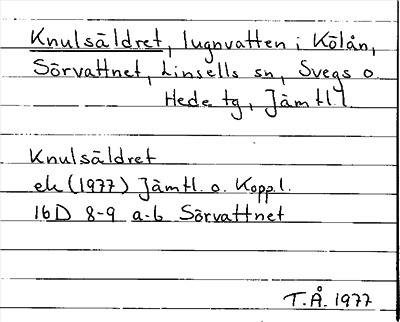 Knulsäldret, lugnvatten i Kölån,
Sörvattnet, Linsells sn, Svegs o
Hede tg, Jämtl l
Knulsäldret
ek (1977) Jämtl. o. Koppl.
16D 8-9 a-b Sörvattnet
T.Å. 1977